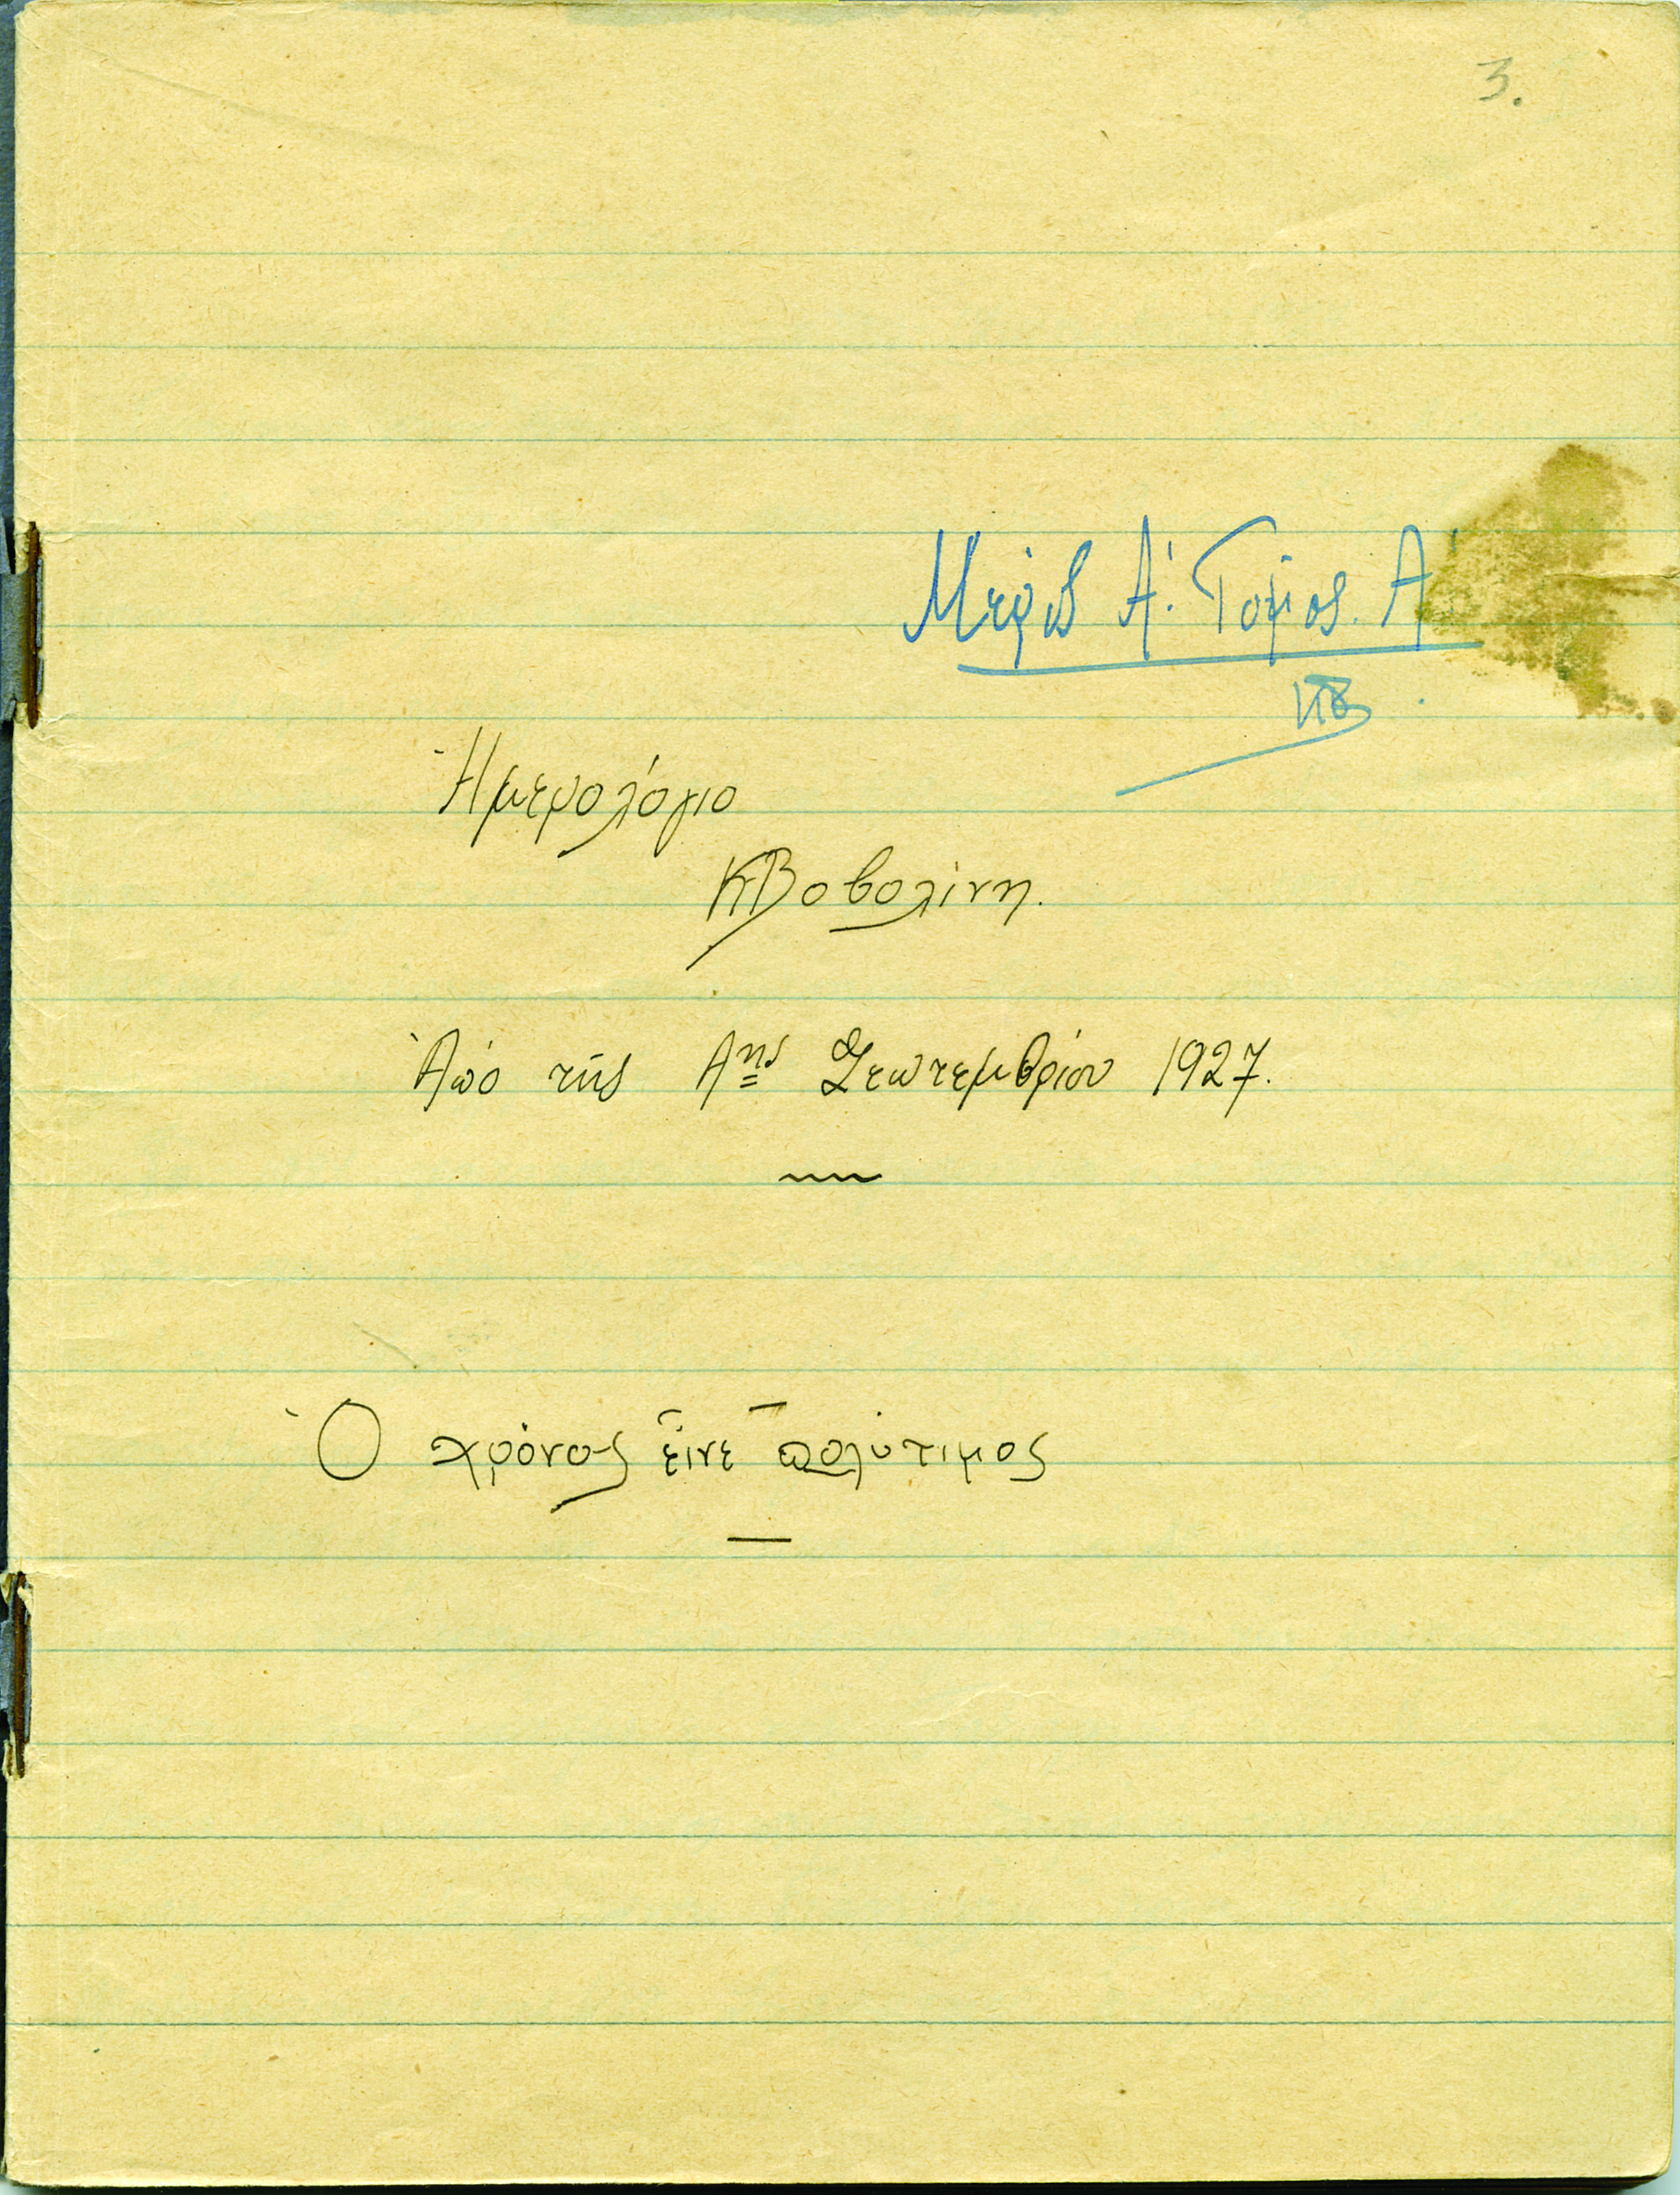 3.
Μερὶς Α'. Τόμος. Α'
ΚΒ
Ἡμερολόγιο
ΚΒοβολίνη.
Ἀπὸ τῆς Αης Σεπτεμβρίου 1927.
Ὁ χρόνος εἶνε πολύτιμος